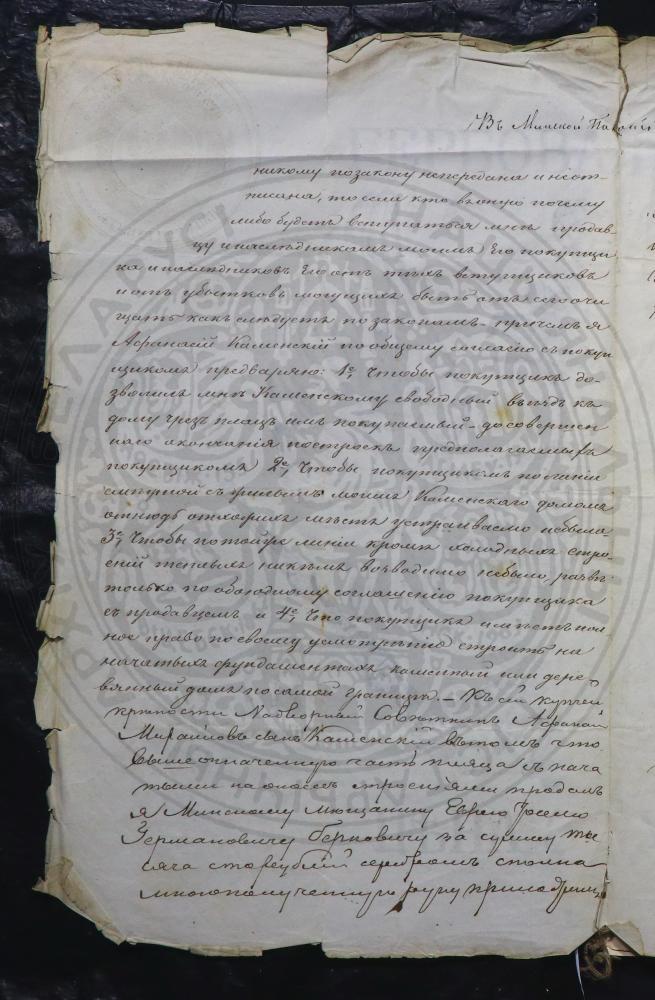 Въ Минской Па
никому позакону непередана и неот-
писана, то если кто вьоную почему
либо будетъ вступаться мнѣ продав-
цу и наслѣдникамъ моимъ Его покупщи-
ка и наслѣдниковъ Его отъ тѣхъ вступщиковъ
и отъ убытковъ могущихъ быть отъ сего очи
щать какъ слѣдуетъ по законамъ – причемъ я
Афанасій Каменскій по общему согласію съ покуп
щикомъ предваряю: 1е, Чтобы покупщикъ до-
зволилъ мнѣ Каменскому свободный въѣздъ къ
дому чрезъ плацъ имъ покупаемый – до совершен
наго окончанія построекъ предполагаемыхъ
покупщикомъ 2е, Чтобы покупщикомъ по линіи
смѣжной съ жилымъ моимъ Каменскаго домомъ
отнюдь отхожихъ мѣстъ устраиваемо небыло
3е, Чтобы по той же линіи кромѣ холодныхъ стро-
еній теплыхъ никѣмъ возводимо небыло, развѣ
только по обоюдному соглашенію покупщика
съ продавцемъ и 4е, Что покупщикъ имѣетъ пол
ное право посвоему усмотрѣнію строить на
начатыхъ фундаментахъ каменный или дере-
вянный домъ посамой границѣ. – Къ сей купчей
крѣпости Надворный Совѣтникъ Афанасій
сынъ Каменскій вътомъ что
вышеозначенную часть пляца съ нача
тыми на ономъ строеніями продалъ
я Минскому мѣщанину Еврею
Германовичу Берковичу за сумму ты
сяча сто рублей серебромъ сполна
мною полученную руку приложилъ